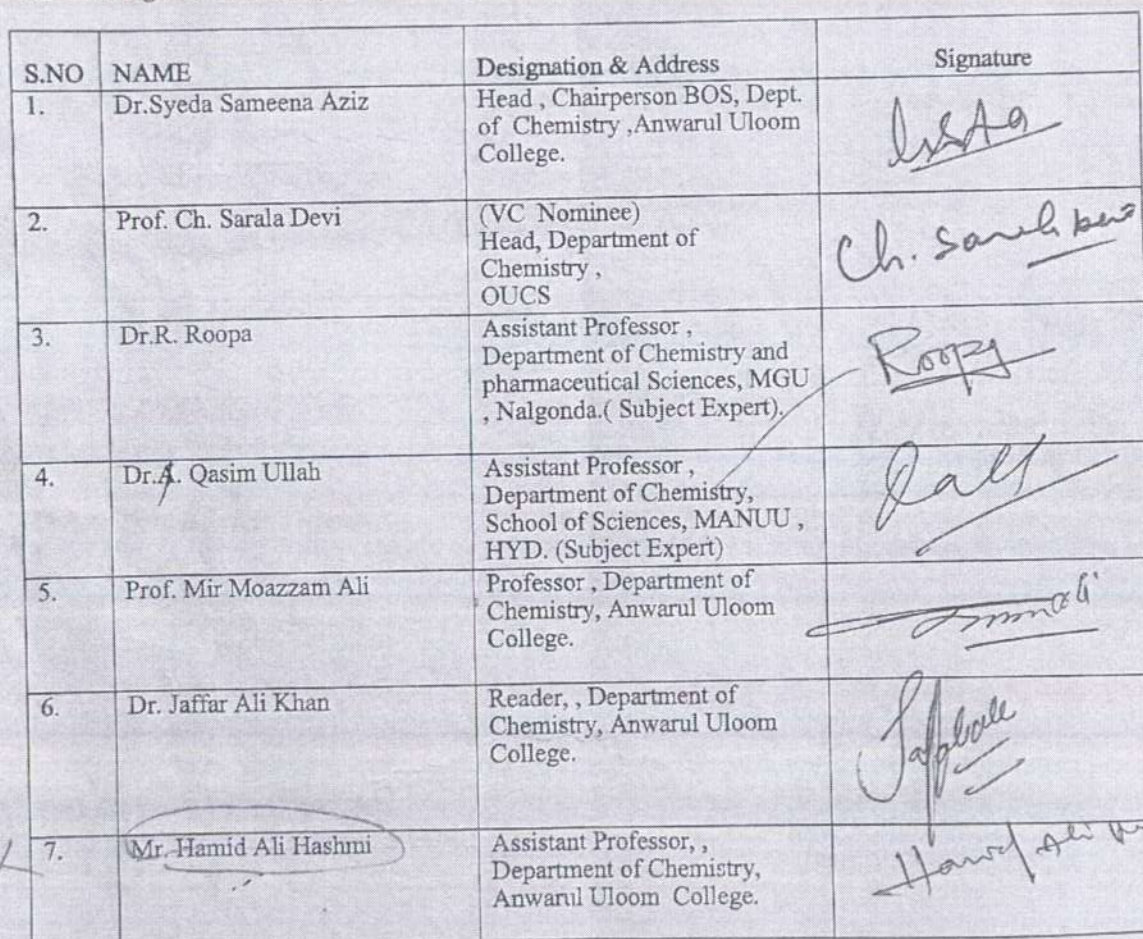 S.NO NAME Designation & Address Signature
1. Dr.Syeda Sameena Aziz Head , Chairperson BOS, Dept.
of Chemistry ,Anwarul Uloom
College.
2. Prof. Ch. Sarala Devi (VC Nominee)
Head, Department of
Chemistry ,
OUCS
Ch. Sarala Devi
3. Dr.R. Roopa Assistant Professor ,
Department of Chemistry and
pharmaceutical Sciences, MGU
, Nalgonda.( Subject Expert).
Roopa
4. Dr.A. Qasim Ullah Assistant Professor ,
Department of Chemistry,
School of Sciences, MANUU ,
HYD. (Subject Expert)
5. Prof. Mir Moazzam Ali Professor , Department of
Chemistry, Anwarul Uloom
College.
6. Dr. Jaffar Ali Khan Reader, , Department of
Chemistry, Anwarul Uloom
College.
7. Mr. Hamid Ali Hashmi Assistant Professor, ,
Department of Chemistry,
Anwarul Uloom College.
Hamid Ali